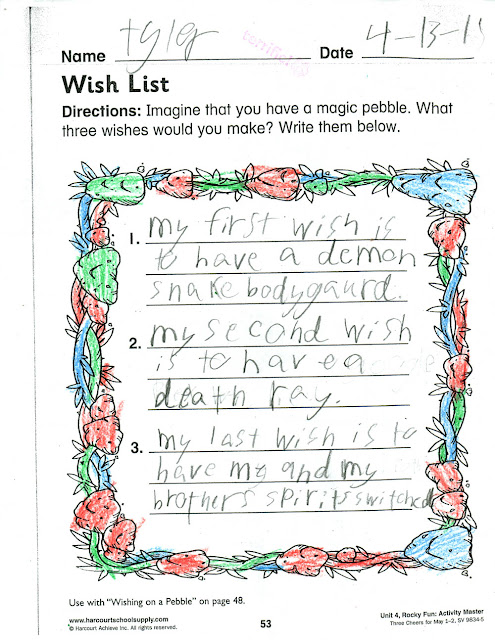 Name tyler Date 4-13-11
terrific!
Wish List
Directions: Imagine that you have a magic pebble. What
three wishes would you make? Write them below.
1. my first wish is
to have a demon
snake bodygaurd.
2. my second wish
is to have a
death ray.
3. my last wish is to
have my and my
brothers spirits switched
Use with "Wishing on a Pebble" on page 48.
www.harcourtschoolsupply.com
© Harcourt Achieve Inc. All rights reserved.
53
Unit 4, Rocky Fun: Activity Master
Three Cheers for May 1–2, SV 9834-5